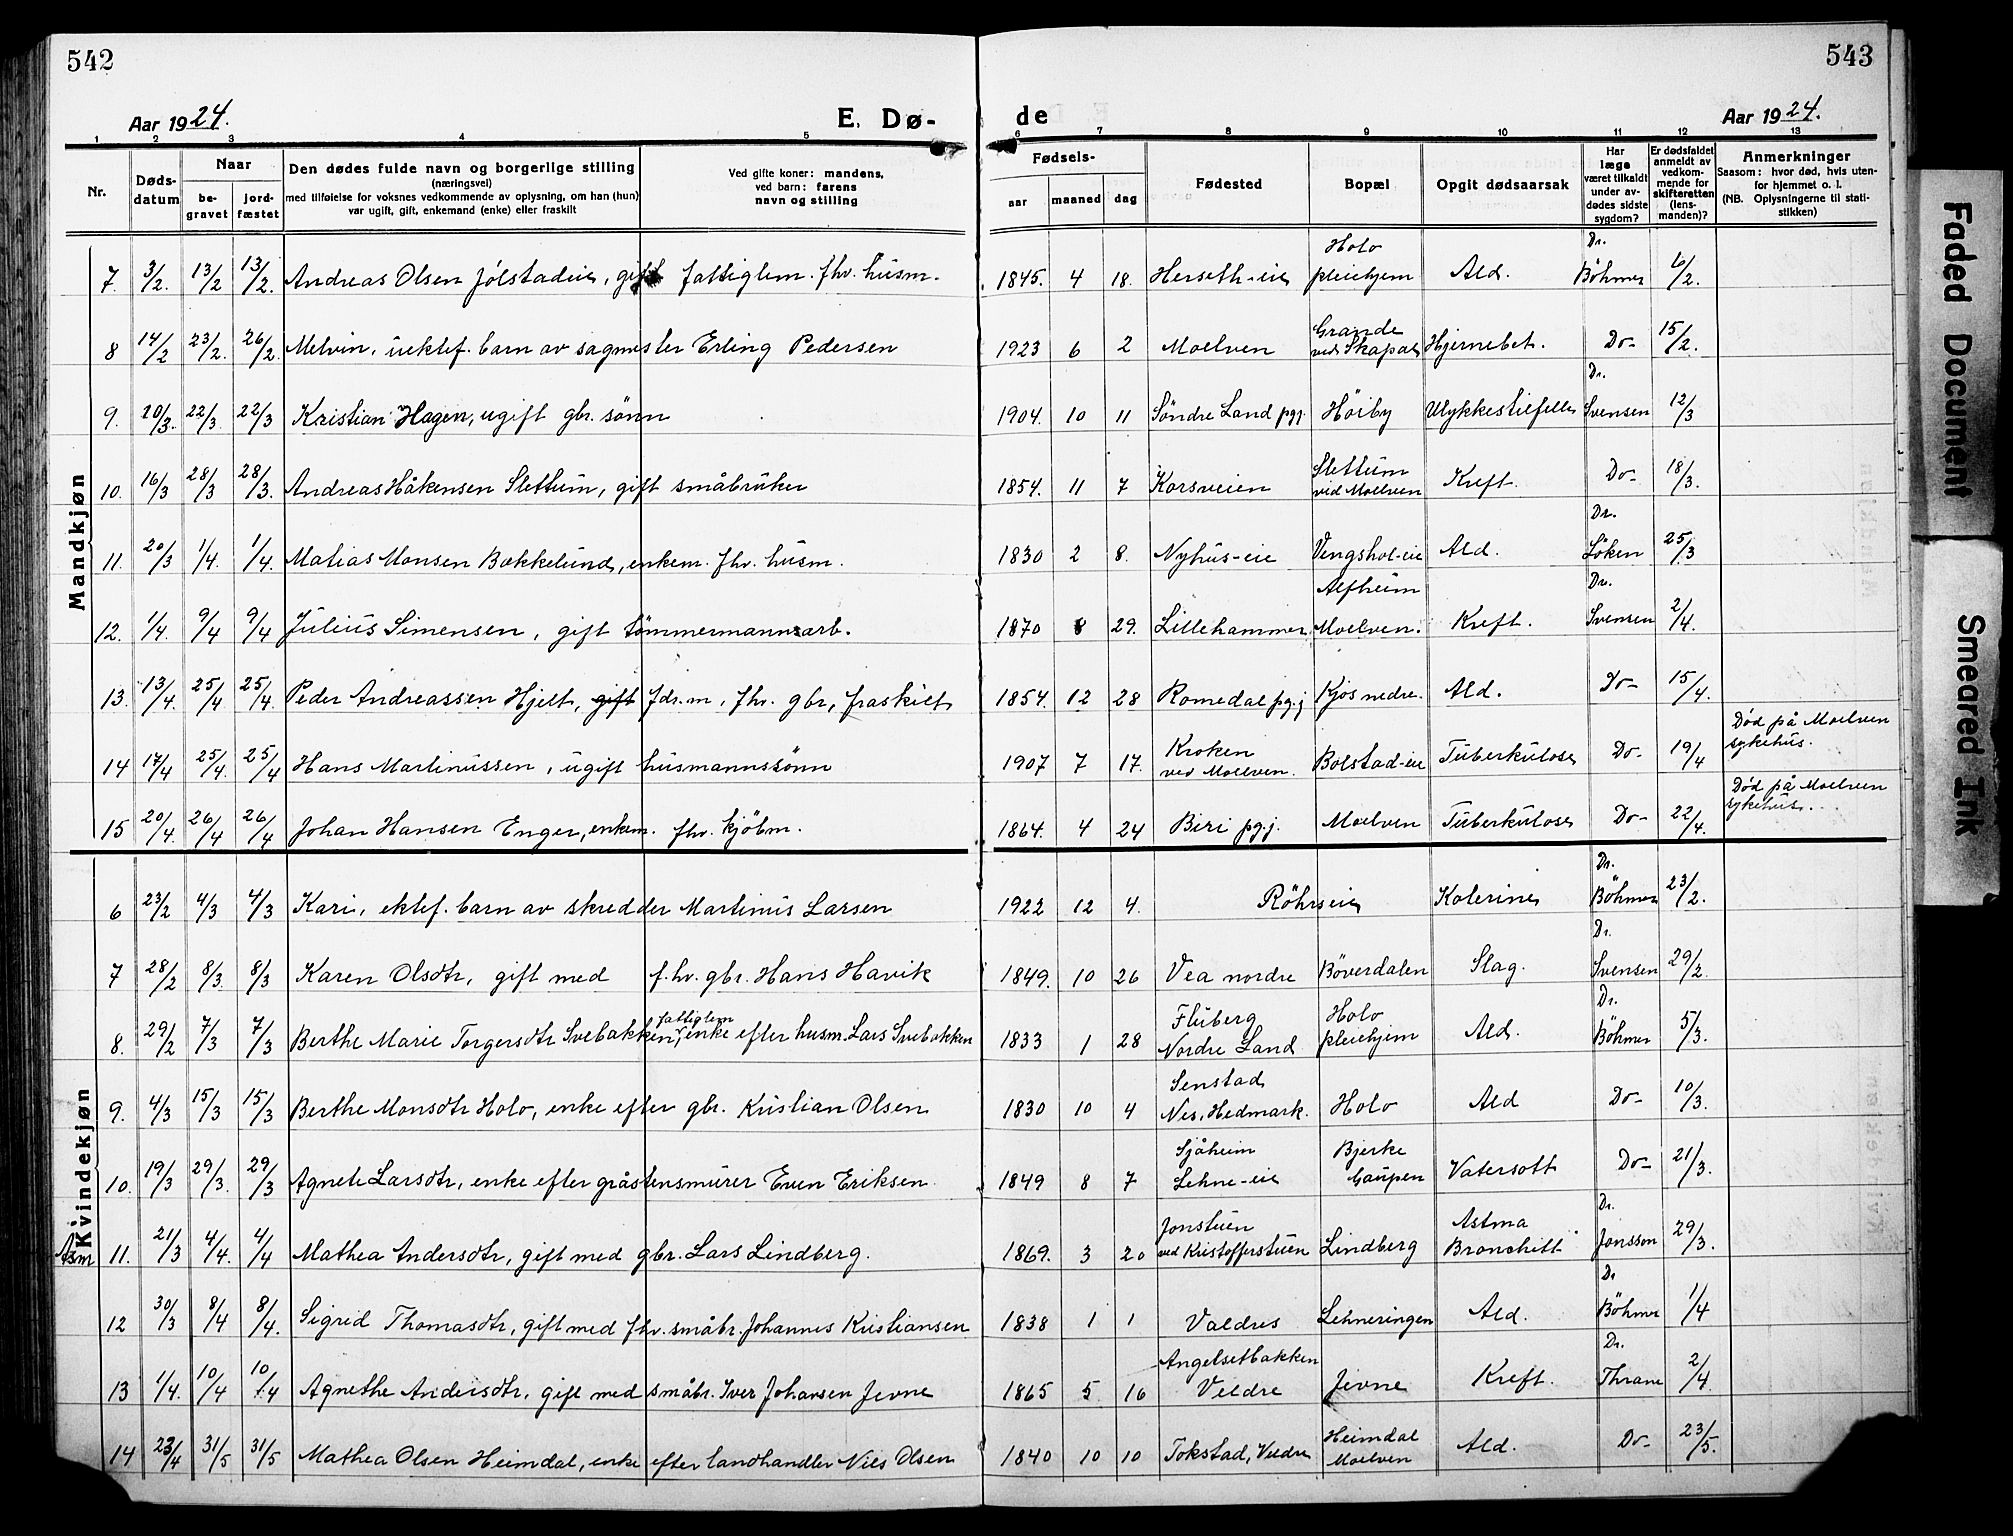 542
543
Aar 1924.
E. Dø-
de
Aar 1924.
1 2 3 4 5 6 7 8 9 10 11 12 13
Nr.
Døds-
datum
Naar
be-
gravet
jord-
fæstet
Den dødes fulde navn og borgerlige stilling
(næringsvei)
med tilføielse for voksnes vedkommende av oplysning, om han (hun)
var ugift, gift, enkemand (enke) eller fraskilt
Ved gifte koner: mandens,
ved barn: farens
navn og stilling
Fødsels-
aar
maaned
dag
Fødested
Bopæl
Opgit dødsaarsak
Har
læge
været tilkaldt
under av-
dødes sidste
sygdom?
Er dødsfaldet
anmeldt av
vedkom-
mende for
skifteretten
(lens-
manden)?
Anmerkninger
Saasom: hvor død, hvis uten-
for hjemmet o. l.
(NB. Oplysningerne til stati-
stikken)
Mandkjøn
7. 3/2. 13/2 13/2. Andreas Olsen Jølstadeie, gift fattiglem. fhv. husm. 1845. 4 18. Herseth-eie Holo pleiehjem Ald. Dr. Böhmer 6/2.
8 14/2 23/2. 26/2. Melvin, uektef. barn av sagmester Erling Pedersen 1923 6 2 Moelven Grande ved Skapal Hjernebet. Do- 15/2.
9. 10/3. 22/3. 22/3 Kristian Hagen, ugift gbr. sønn 1904. 10 11 Söndre Land pgj. Höiby Ulykkestilfelle Dr. Svensen 12/3
10. 16/3 28/3 28/3. Andreas Håkensen Slettum, gift småbruker 1854. 11 7 Korsveien Slettum ved Moelven Kreft. Do- 18/3.
11. 20/3 1/4. 1/4. Matias Monsen Bakkelund, enkem. fhv. husm. 1830 2 8. Nyhus-eie Vengshol-eie Ald. Dr. Löken 25/3
12. 1/4. 9/4 9/4 Julius Simensen, gift tömmermannsarb. 1870 8 29. Lillehammer Alfheim Moelven. Kreft. Dr. Svensen 2/4.
13. 13/4. 25/4. 25/4. Peder Andreassen Hjelt, gift fdr.m, fhv. gbr, fraskilt 1854. 12 28 Romedal pgj Kjos nedre. Ald. Do- 15/4.
14 17/4 25/4. 25/4 Hans Martinussen, ugift husmannssönn 1907 7 17. Kroken ved Moelven. Bolstad-eie Tuberkulose Do- 19/4 Död på Moelven sykehus.
15 20/4. 26/4 26/4 Johan Hansen Enger, enkem. fhv. kjöbm. 1864. 4 24 Biri pgj. Moelven Tuberkulose Do- 22/4. Död på Moelven sykehus.
Kvindekjøn
6 23/2 4/3 4/3 Kari, ektef. barn av skredder Martinus Larsen 1922 12 4. Röhrseie Kolerine Dr. Böhmer 23/2.
7 28/2 8/3. 8/3 Karen Olsdtr, gift med f.hv. gbr. Hans Havik 1849. 10 26 Vea nordre Böverdalen Slag. Dr. Svensen 29/2.
8. 29/2 7/3 7/3 Berthe Marie Torgersdtr Svebakken, fattiglem enke efter husm. Lars Svebakken 1833 1 28 Fluberg Nordre Land Holo pleiehjem Ald. Dr. Böhmer 5/3.
9. 4/3 15/3 15/3 Berthe Monsdtr Holo, enke efter gbr. Kristian Olsen 1830 10 4 Senstad Nes, Hedmark. Holo Ald Do- 10/3.
10. 19/3 29/3. 29/3 Agnete Larsdtr, enke efter gråstensmurer Even Eriksen 1849 8 7 Sjåheim Lehne-eie Bjerke Gaupen Vatersott Do- 21/3.
11. 21/3 4/4. 4/4 Mathea Andersdtr, gift med gbr. Lars Lindberg. 1869. 3 20 Jonstuen ved Kristofferstuen Lindberg Astma Bronchitt Dr. Jonsson 29/3.
12 30/3 8/4 8/4. Sigrid Thomasdtr, gift med fhv. småbr. Johannes Kristiansen 1838 1 1 Valdres Lehneringen Ald. Dr Böhmer 1/4
13 1/4. 10/4 10/4 Agnethe Andersdtr, gift med småbr. Iver Johansen Jevne 1865 5 16 Angelsetbakken Veldre Jevne Kreft. Dr. Thrane 2/4.
14 23/4 31/5 31/5 Mathea Olsen Heimdal, enke efter landhandler Nils Olsen 1840 10 10 Tokstad, Veldre Heimdal Moelven Ald. Do- 23/5.
Faded Document
Smeared Ink